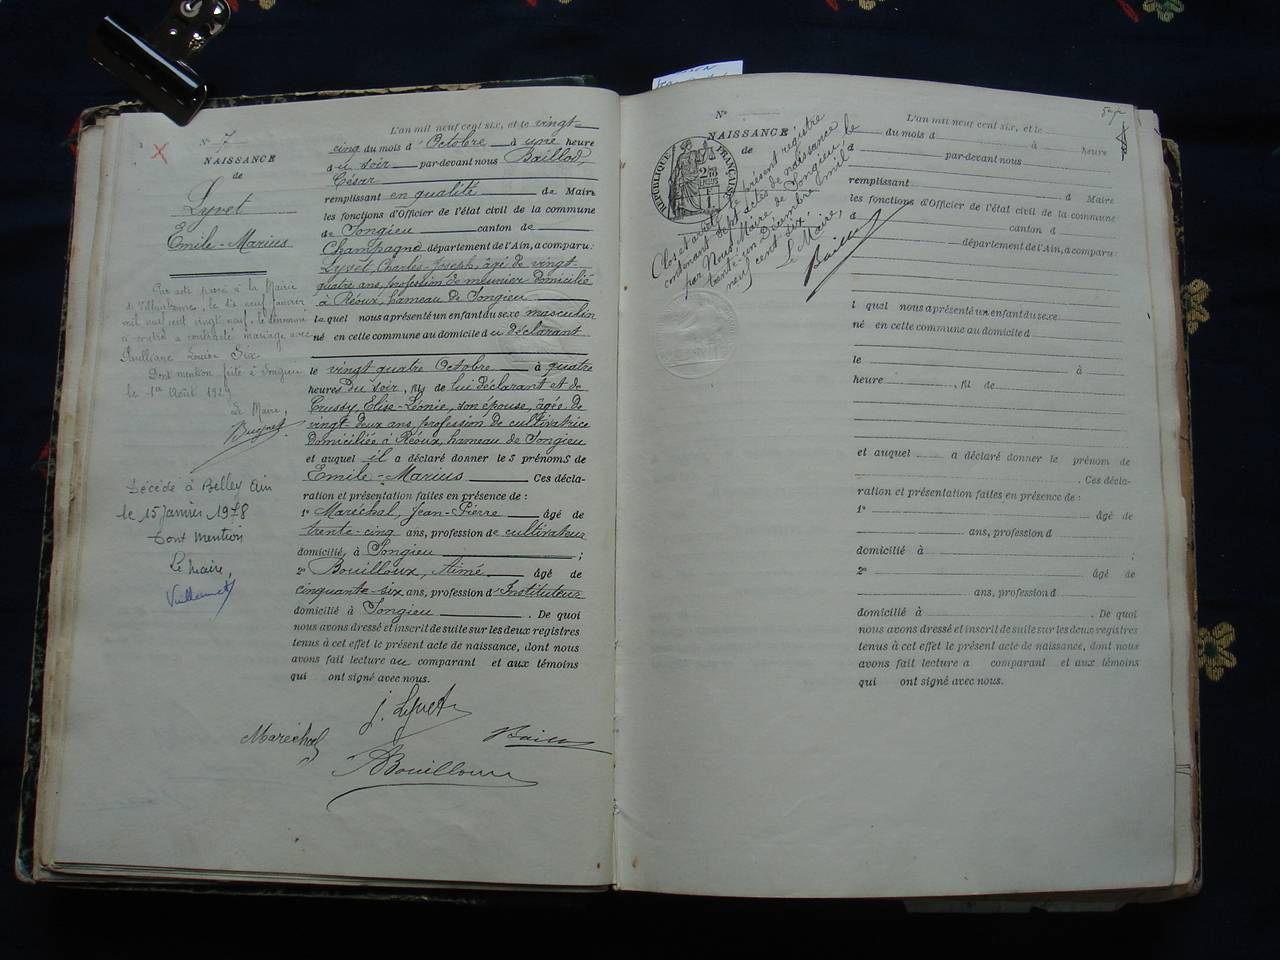 N° 7
NAISSANCE
de
Lyvet
Emile-Marius
Par acte passé à la Mairie
de Villeurbanne, le dix neuf janvier
mil neuf cent vingt neuf, le dénommé
ci-contre a contracté mariage avec
Paulliane Louise Six
Dont mention faite à Songieu
le 1er Août 1929
Le Maire,
Décédé à Belley Ain
le 15 janvier 1978
Dont mention
Le Maire,
L'an mil neuf cent six, et le vingt-
cinq du mois d'Octobre à une heure
du soir par-devant nous Baillod
César
remplissant en qualité de Maire
les fonctions d'Officier de l'état civil de la commune
de Songieu canton de
Champagne département de l'Ain, a comparu:
Lyvet, Charles-Joseph, âgé de vingt-
quatre ans, profession de meunier domicilié
à Réoux, hameau de Songieu
lequel nous a présenté un enfant du sexe masculin
né en cette commune au domicile du déclarant
le vingt quatre Octobre à quatre
heures du soir, fils de lui déclarant et de
Crussy, Elise-Léonie, son épouse, âgée de
vingt-deux ans, profession de cultivatrice
domiciliée à Réoux, hameau de Songieu
et auquel il a déclaré donner les prénoms de
Emile-Marius Ces décla-
ration et présentation faites en présence de :
1° Maréchal, Jean-Pierre âgé de
trente-cinq ans, profession de cultivateur
domicilié, à Songieu ;
2° Bouilloux, Aimé âgé de
cinquante-six ans, profession d'Instituteur
domicilié à Songieu. De quoi
nous avons dressé et inscrit de suite sur les deux registres
tenus à cet effet le présent acte de naissance, dont nous
avons fait lecture au comparant et aux témoins
qui ont signé avec nous.
J. Lyvet
Maréchal
Baillod
ABouilloux
N°
NAISSANCE
de
RÉPUBLIQUE FRANÇAISE
Clos et arrêté le présent registre
contenant sept actes de naissance
par Nous, Maire de Songieu, le
trente-un Décembre mil
neuf cent six.
Le Maire,
Baillod
L'an mil neuf cent six, et le
du mois d à heure
d par-devant nous
remplissant d Maire
les fonctions d'Officier de l'état civil de la commune
d canton d
département de l'Ain, a comparu:
l quel nous a présenté un enfant du sexe
né en cette commune au domicile d
le à
heure , fil de
et auquel a déclaré donner le prénom de
. Ces décla-
ration et présentation faites en présence de :
1° âgé de
ans, profession d
domicilié à ;
2° âgé de
ans, profession d
domicilié à . De quoi
nous avons dressé et inscrit de suite sur les deux registres
tenus à cet effet le présent acte de naissance, dont nous
avons fait lecture a comparant et aux témoins
qui ont signé avec nous.